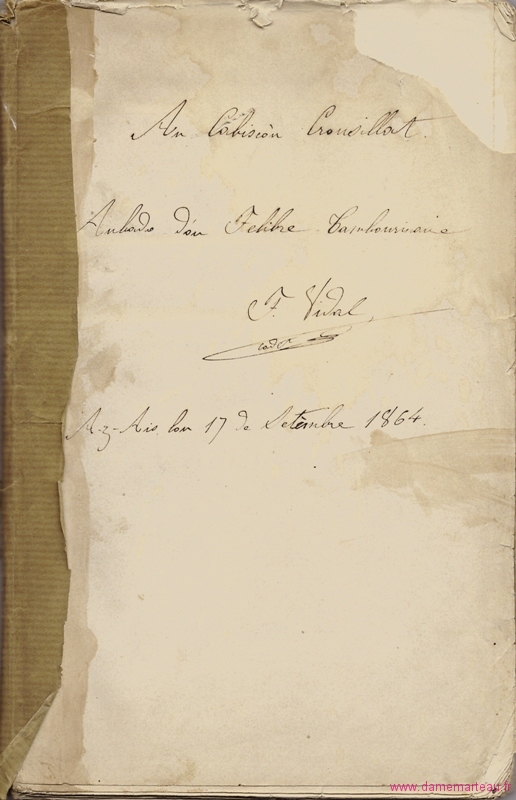 Au Cabiscòu Crousillat.
Aubado dóu Felibre Tambourinaire
F. Vidal,
cadet
A-z-Ais lou 17 de Setèmbre 1864.
www.damemarteau.fr